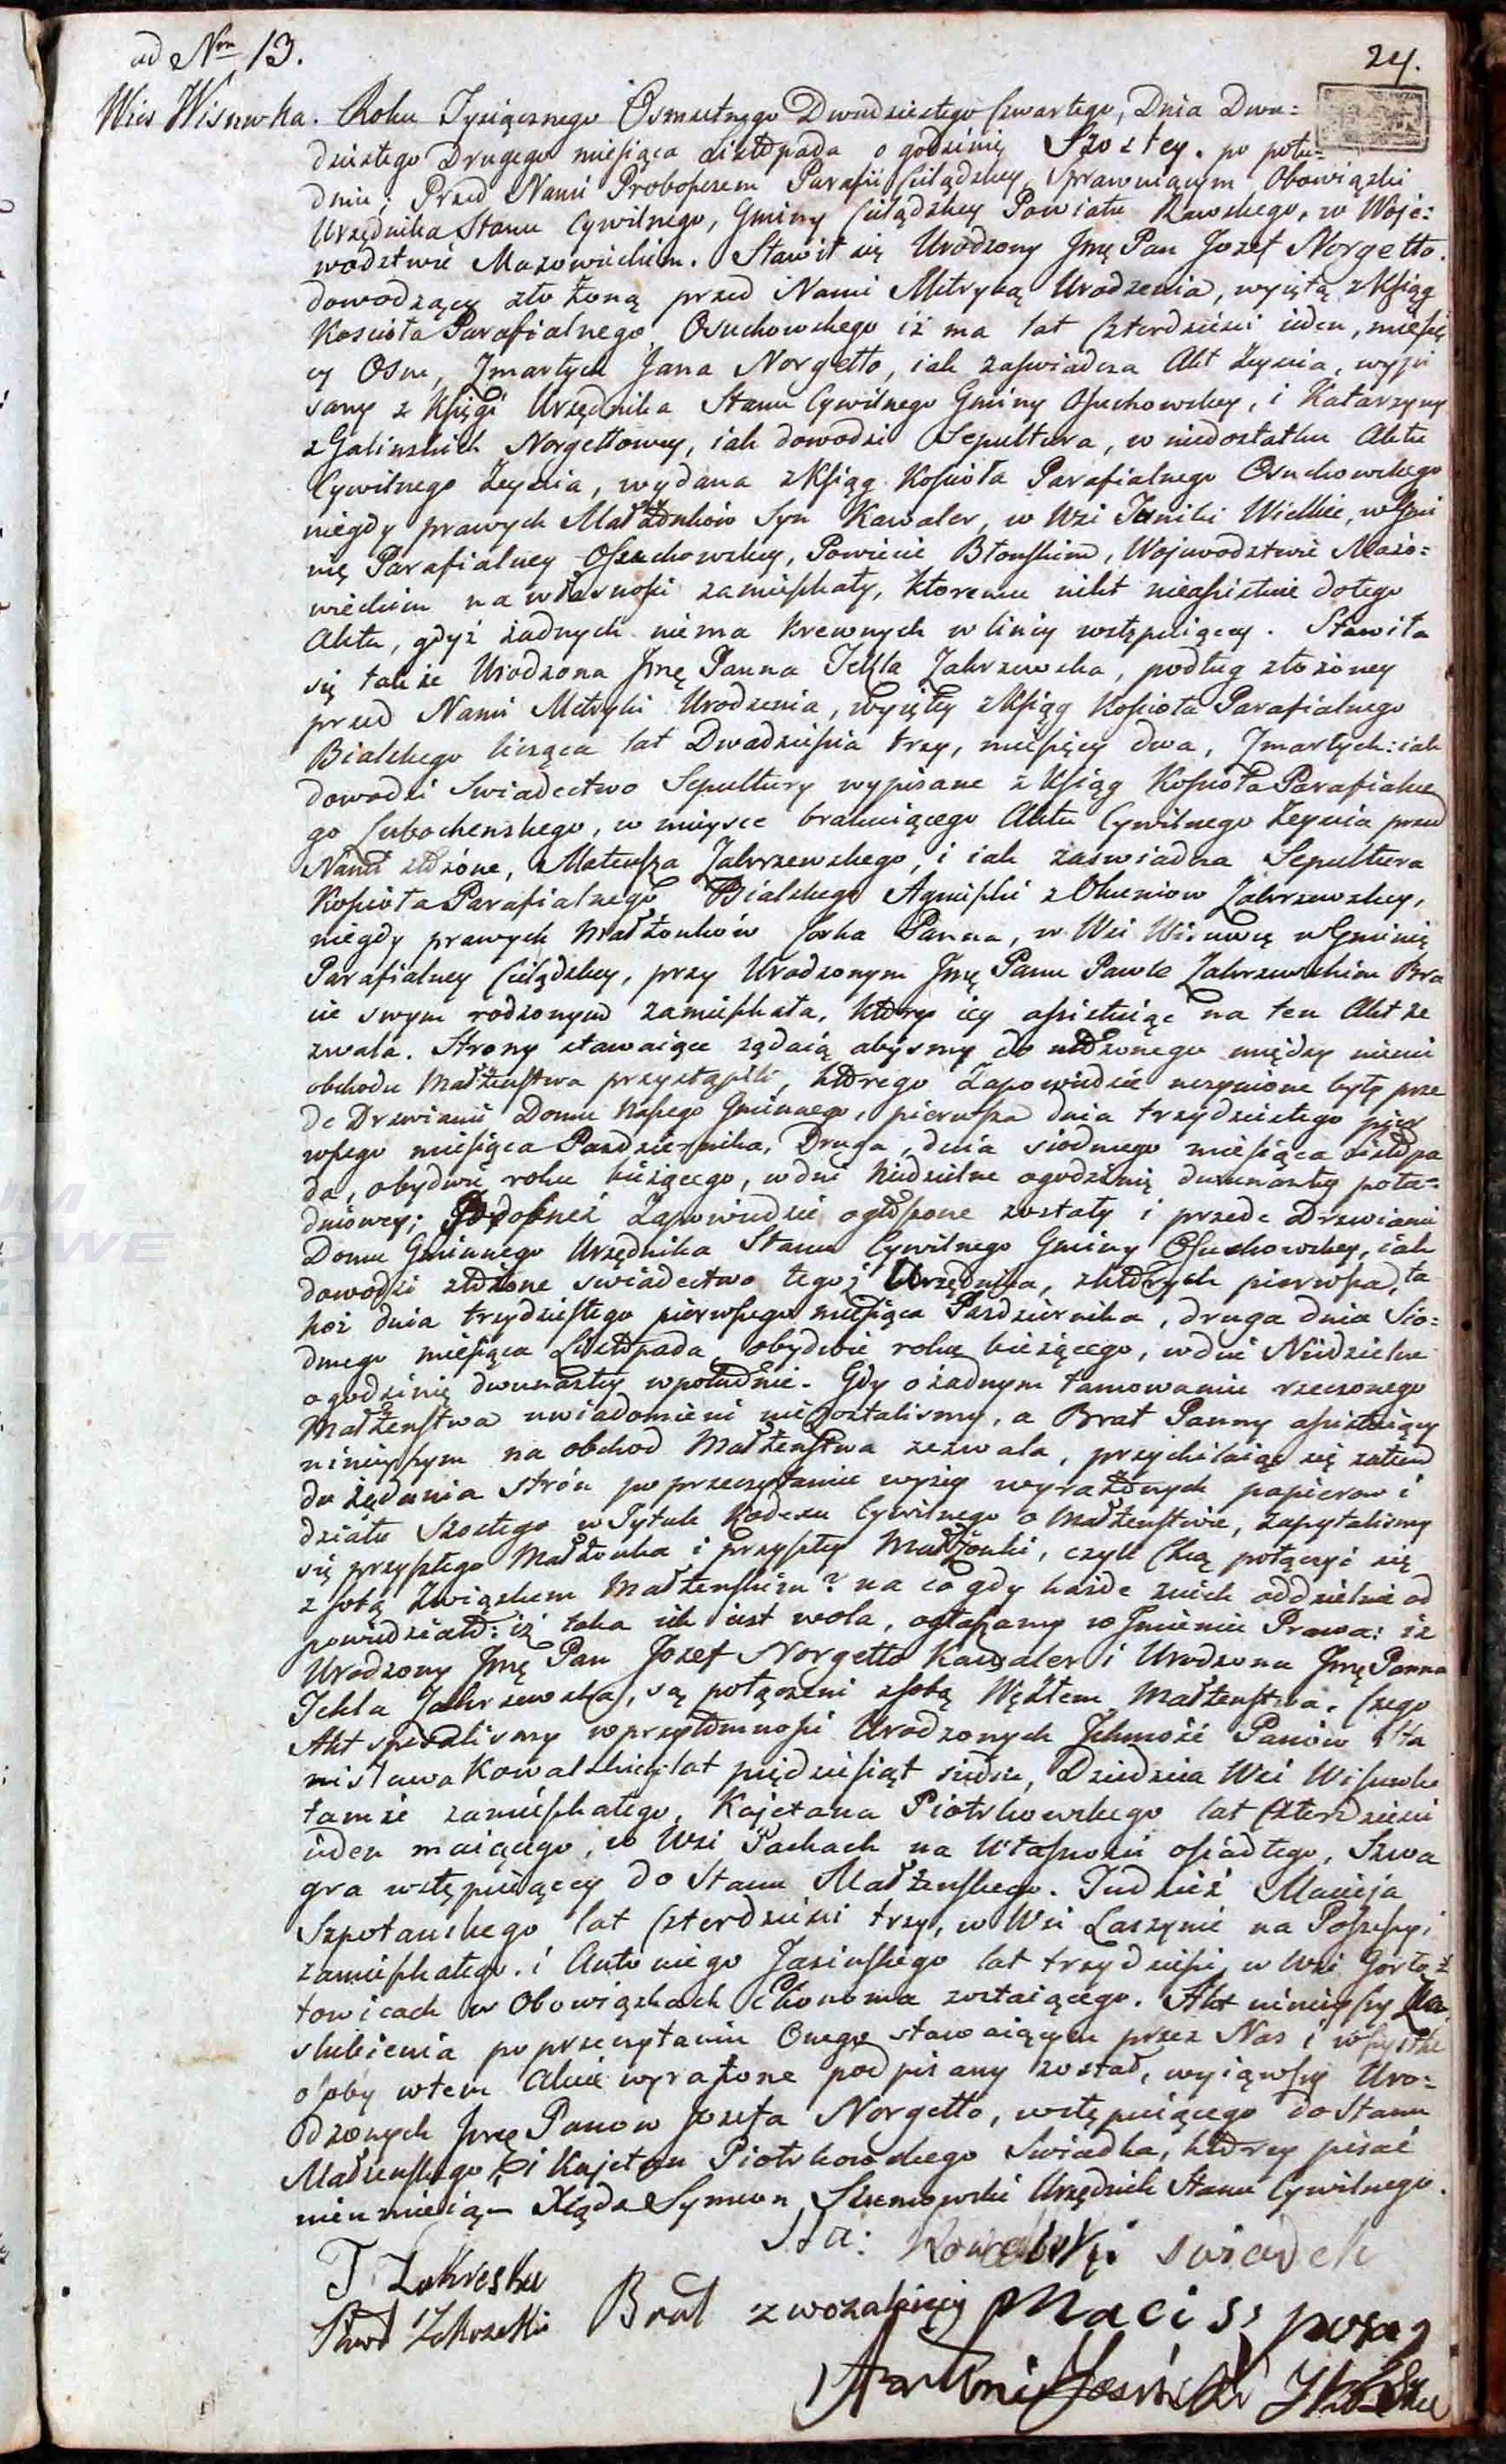 ad Nrm 13.
24.
Wieś Wisnwka. Roku Tysiącznego Osmsetnego Dwudziestego Czwartego, Dnia Dwu=
dziestego Drugiego miesiąca Listopada o godzinie Szostey. po połu=
dniu; Przed Nami Proboszczem Parafii Cielądzkiey Sprawuiącym Obowiązki
Urzędnika Stanu Cywilnego, Gminy Cielądzkiey Powiatu Rawskiego, w Woje:
wodztwie Mazowieckim. Stawił się Urodzony Jmę Pan Jozef Norgetto.
dowodzący złożoną przed Nami Metryką Urodzenia, wyiętą z Ksiąg
Kościoła Parafialnego Osuchowskego iż ma lat Czterdzieści ieden, miesię
cy Osm, Zmarłych Jana Norgetto, iak zaswiadcza Akt Zeyscia, wypi
sany z Księgi Urzędnika Stanu Cywilnego Gminy Osuchowskiey, i Katarzyny
z Galinskich Norgettowey, iak dowodzi Sepultura, w niedostatku Aktu
Cywilnego Zeyscia, wydana z Ksiąg Kościoła Parafialnego Osuchowskego
niegdy prawych Małżonków Syn Kawaler, w Wsi Wielkie, w Gmi
nie Parafialney Osuchowskiey, Powiecie Błonskim, Wojewodztwie Mazo=
wieckim na własności zamieszkały, ktoremu nikt nieassistuie do tego
Aktu, gdyż żadnych niema krewnych w linij wstępuiącey. Stawiła
się także Urodzona Jmę Panna Tekla Zakrzewska, podług złożoney
przed Nami Metryki Urodzenia, wyiętey z Ksiąg Kościoła Parafialnego
Bialskego licząca lat Dwadzieścia trzy, miesięcy dwa, Zmarłych: iak
dowodzi Swiadectwo Sepultury wypisane z Ksiąg Kościoła Parafialne
go Lubochenskego, w mieysce brakuiącego Aktu Cywilnego Zeyscia przed
Nami złożone, Mateusza Zakrzewskego, i iak zaswiadcza Sepultura
Kościoła Parafialnego Bialskego Agnieszki z Okuniow Zakrzewskiey,
niegdy prawych Małżonków Corka Panna, w Wsi w Gminie
Parafialney Cielądzkiey, przy Urodzonym Jmę Panu Pawle Zakrzewskim Bra
cie swym rodzonym zamieszkała, który iey assistuiąc na ten Akt ze
zwala. Strony stawaiące żądaią abysmy do ułożonego między niemi
obchodu Małżenstwa przystąpili, którego Zapowiedzie uczynione były prze
de Drzwiami Domu Naszego Gminnego, pierwsza dnia trzydziestego pier
wszego miesiąca Pazdziernika, Druga, dnia siodmego miesiąca Listopa
da, obydwie roku bieżącego, w dni Niedzielne o godzinie dwunastey połu=
dniowey; Podobneż Zapowiedzie ogłoszone zostały i przede Drzwiami
Domu Gminnego Urzędnika Stanu Cywilnego Gminy Osuchowskiey, iak
dowodzi złożone swiadectwo tegoż Urzędnika, z których pierwsza, ta
koż dnia trzydziestego pierwszego miesiąca Pazdziernika, druga dnia Sio=
dmego miesiąca Listopada obydwie roku bieżącego, w dni Niedzielne
o godzinie dwunastey w południe. Gdy o żadnym tamowaniu rzeczonego
Małżenstwa uwiadomieni nie zostalismy, a Brat Panny assistuiący
ninieyszym na obchod Małżenstwa zezwala, przychilaiąc się zatem
do żądania strón po przeczytaniu wyżey wyrażonych papierow i
działu Szostego w Tytule Kodexu Cywilnego o Małżenstwie, zapytalismy
się przyszłego Małżonka i przyszłey Małżonki, czyli chcą połączyć się
z sobą Związkiem Małżenskim? na co gdy każde z nich oddzielnie od
powiedziało: iż taka ich iest wola, ogłaszamy w Jmieniu Prawa: iż
Urodzony Jmę Pan Jozef Norgetto Kawaler i Urodzona Jmę Panna
Tekla Zakrzewska, są połączeni z sobą Węzłem Małżenstwa. Czego
Akt spisalismy w przytomności Urodzonych Jchmość Panów Sta
nisława Kowalskiego lat pięćdziesiąt siedm, Dziedzica Wsi
tamże zamieszkałego, Kajetana Piotrkowskego lat Czterdzieści
ieden maiącego, w Wsi Pachach na Własności osiadłego, Szwa
gra wstępuiącey do Stanu Małżenskego. Tudzież Macieja
Szpotanskego lat Czterdzieści trzy, w Wsi Laszynie na Possessyi
zamieszkałego. i Antoniego Jasinskiego lat trzydzieści, w Wsi
towicach w Obowiązkach Ekonoma zostaiącego. Akt ninieyszy Za
slubienia po przeczytaniu Onego stawaiącym przez Nas i wszystkie
osoby w tem Akcie wyrażone podpisany został, wyiąwszy Uro=
dzonych Jmę Panow Jozefa Norgetto, wstępuiącego do Stanu
Małżenskego, i Kajetan Piotrkowskego Swiadka, którzy pisać
nieumieią – Xiądz Symeon Urzędnik Stanu Cywilnego.
Sta: Kowalski swiadek
T Zakreska
Brat zwozalaiący Maci
Antoni Jasinski